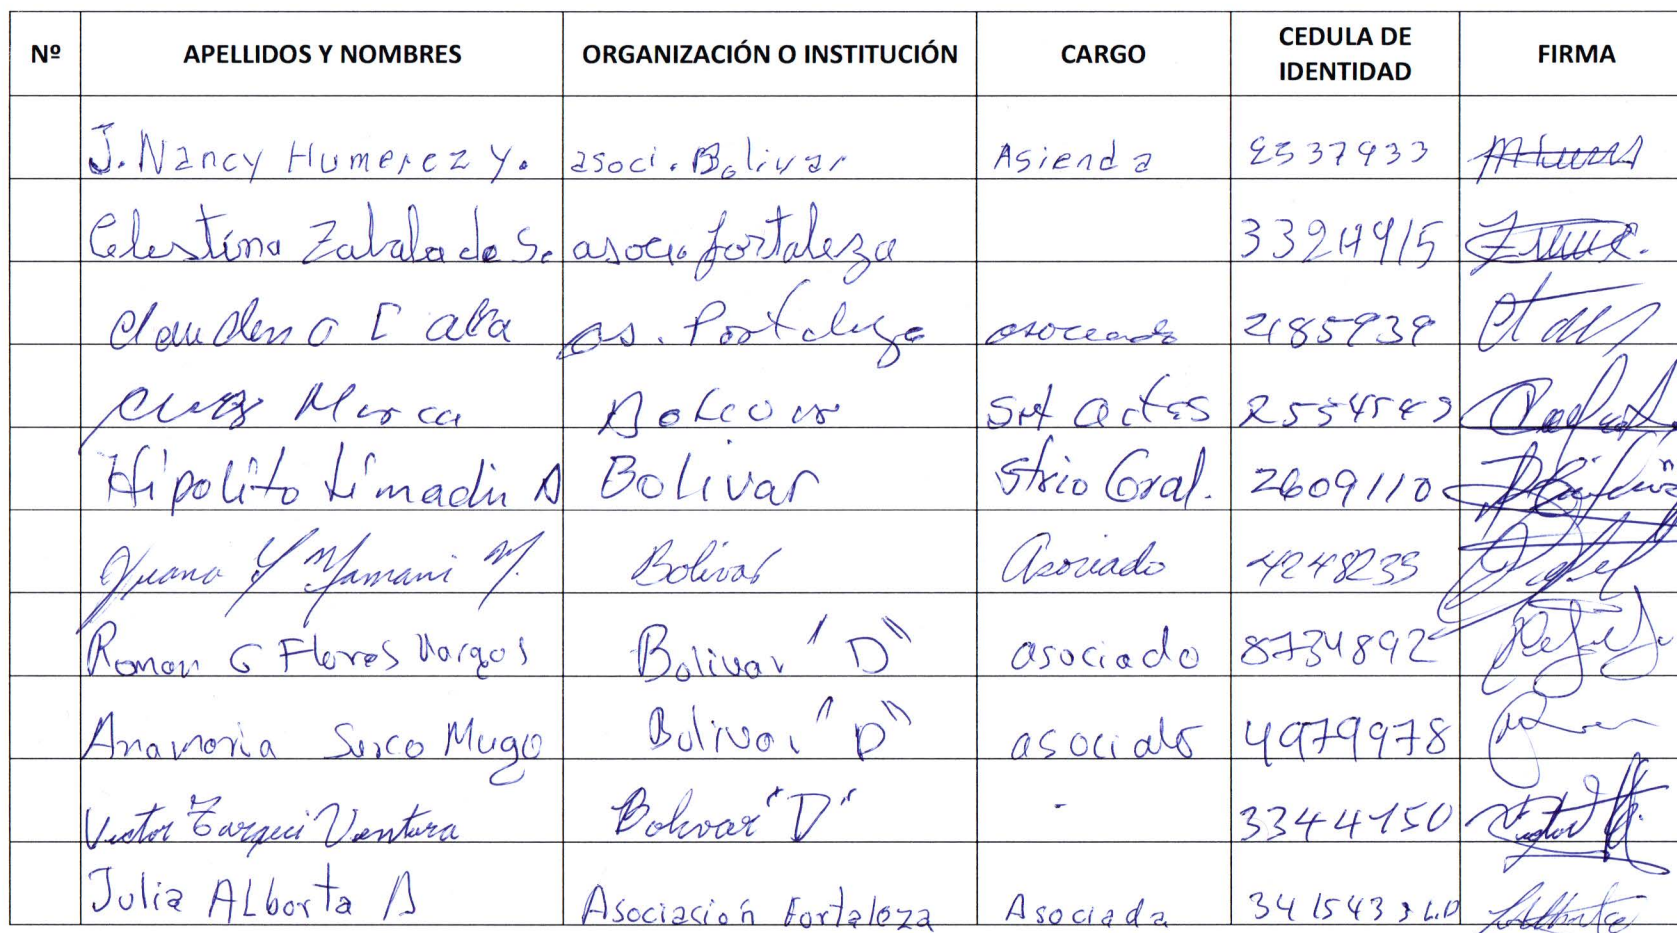 Nº APELLIDOS Y NOMBRES ORGANIZACIÓN O INSTITUCIÓN CARGO CEDULA DE IDENTIDAD FIRMA
J. Nancy Humerez Y. asoci. Bolivar Asienda 2537933
Celestina Zabala de S. asocia fortaleza
as. Fortaleza asociado 2185939
Bolivar actas
Hipolito Limachi A Bolivar Strio Gral. 2609110
Juana Y Mamani M. Bolivar Asociado 4248239
Roman G Flores Vargas Bolivar "D" asociado 8734892
Anamaria Surco Mugo Bolivar "D" asociado 4979978
Victor Tarqui Ventura Bolivar "D" - 3344150
Julia ALborta A Asociasión Fortaleza Asociada